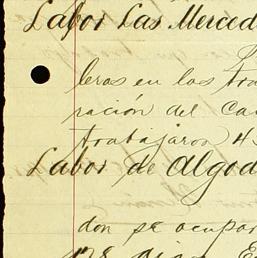 Labor Las Merced
leros en los tra
ración del Ca
trabajaron 4
Labor de Algod
don se ocupar
dias